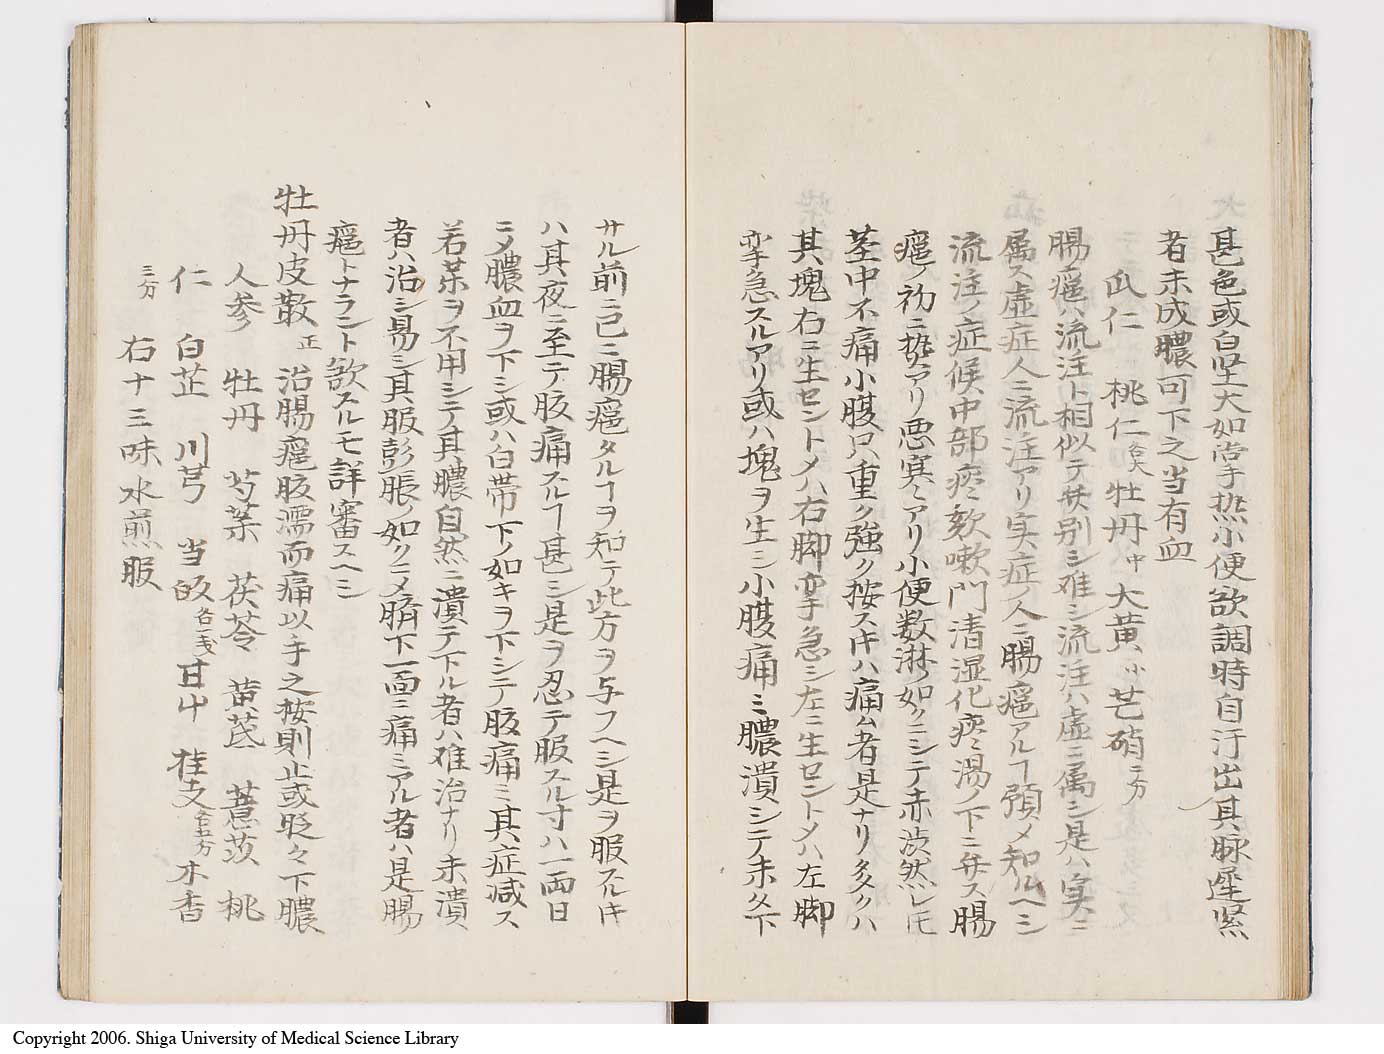 甚色或白堅大如掌熱小便欲調時自汗出其脉遲緊
者未成膿可下之当有血
瓜仁 桃仁各大 牡丹中 大黄小 芒硝二分
腸癰ハ流注ト相似テ弁別シ难シ流注ハ虚ニ属シ是ハ実ニ
属ス虚症人ニ流注アリ実症ノ人ニ腸癰アルヿ預メ知ルヘシ
流注ノ症候中部痰欬嗽門清湿化痰湯ノ下ニ弁ス腸
癰ノ初ニ熱アリ悪寒アリ小便数淋ノ如クニシテ赤渋然レ𪜈
茎中不痛小腹只重ク強ク按スキハ痛ム者是ナリ多クハ
其塊右ニ生セントメハ右脚挛急シ左ニ生セントメハ左脚
挛急スルアリ或ハ塊ヲ生シ小腹痛ミ膿潰シテ未タ下
サル前ニ已ニ腸癰タルヿヲ知テ此方ヲ与フヘシ是ヲ服スルキ
ハ其夜ニ至テ腹痛スルヿ甚シ是ヲ忍テ服スル寸ハ一両日
ニメ膿血ヲ下シ或ハ白帯下ノ如キヲ下シテ腹痛ミ其症减ス
若薬ヲ不用シテ其膿自然ニ潰テ下ル者ハ难治ナリ未潰
者ハ治シ易シ其服彭脹ノ如クニメ臍下一面ニ痛ミアル者ハ是腸
癰トナラント欲スルモ詳審スヘシ
牡丹皮散正 治腸癰腹濡而痛以手之按則止或时々下膿
人参 牡丹 芍薬 茯苓 黄芪 薏苡 桃
仁 白芷 川芎 当皈各一戔 甘艸 桂支各五分 木香
三分 右十三味水煎服
Copyright 2006. Shiga University of Medical Science Library